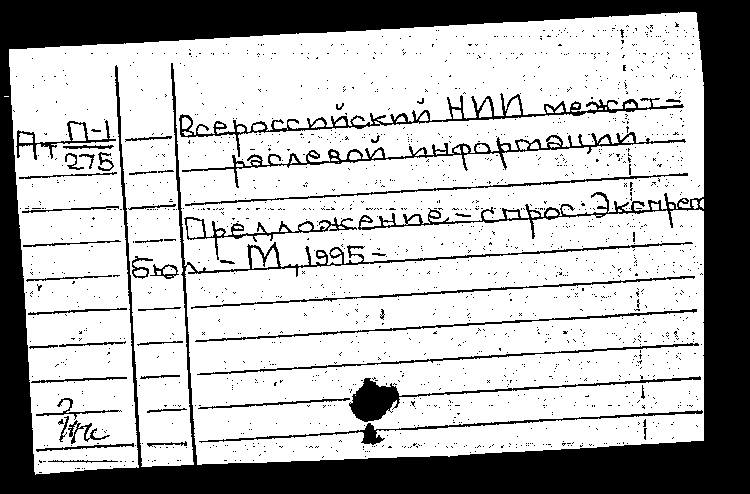 Пт П-1
275
Всероссийский НИИ межот-
раслевой информации.
Предложение - спрос: Экспресс
бюл. - М., 1995 -